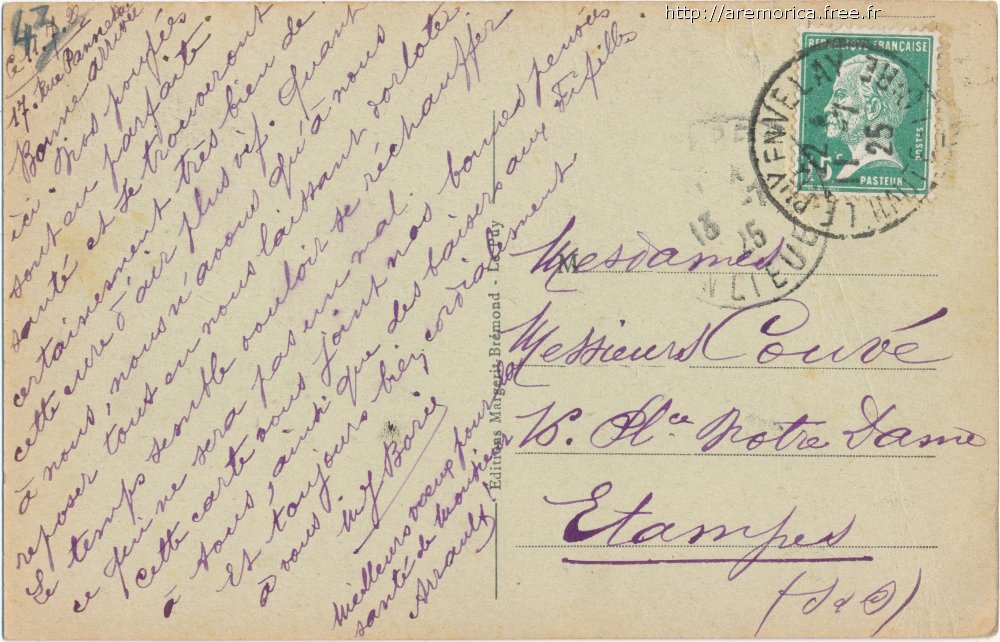 http://aremorica.free.fr
47
Ce 11.7.
17. Rue Pannessac
Bonne arrivée
ici. Nos poupées
sont en parfaite
santé et se trouveront
certainement très bien de
cette cure d'air plus vif. Quant
à nous, nous n'avons qu'à nous
reposer tous en nous laissant dorloter
Le temps semble vouloir se réchauffer
ce qui ne sera pas un mal.
Cette carte vous joint nos bonnes pensées
à vous, ainsi que des baisers aux Fifilles.
Et toujours bien cordialement
à vous
M Borie
Meilleurs vœux pour la
santé de Monsieur
Arrault
Editions Margerit-Brémond - Le Puy
REPUBLIQUE FRANÇAISE
POSTES
15c
PASTEUR
LE PUY EN VELAY
HAUTE LOIRE
22
25
18
25
M
Mesdames
Messieurs Couvé
15. Pl.ce Notre Dame
Etampes
(S&O)